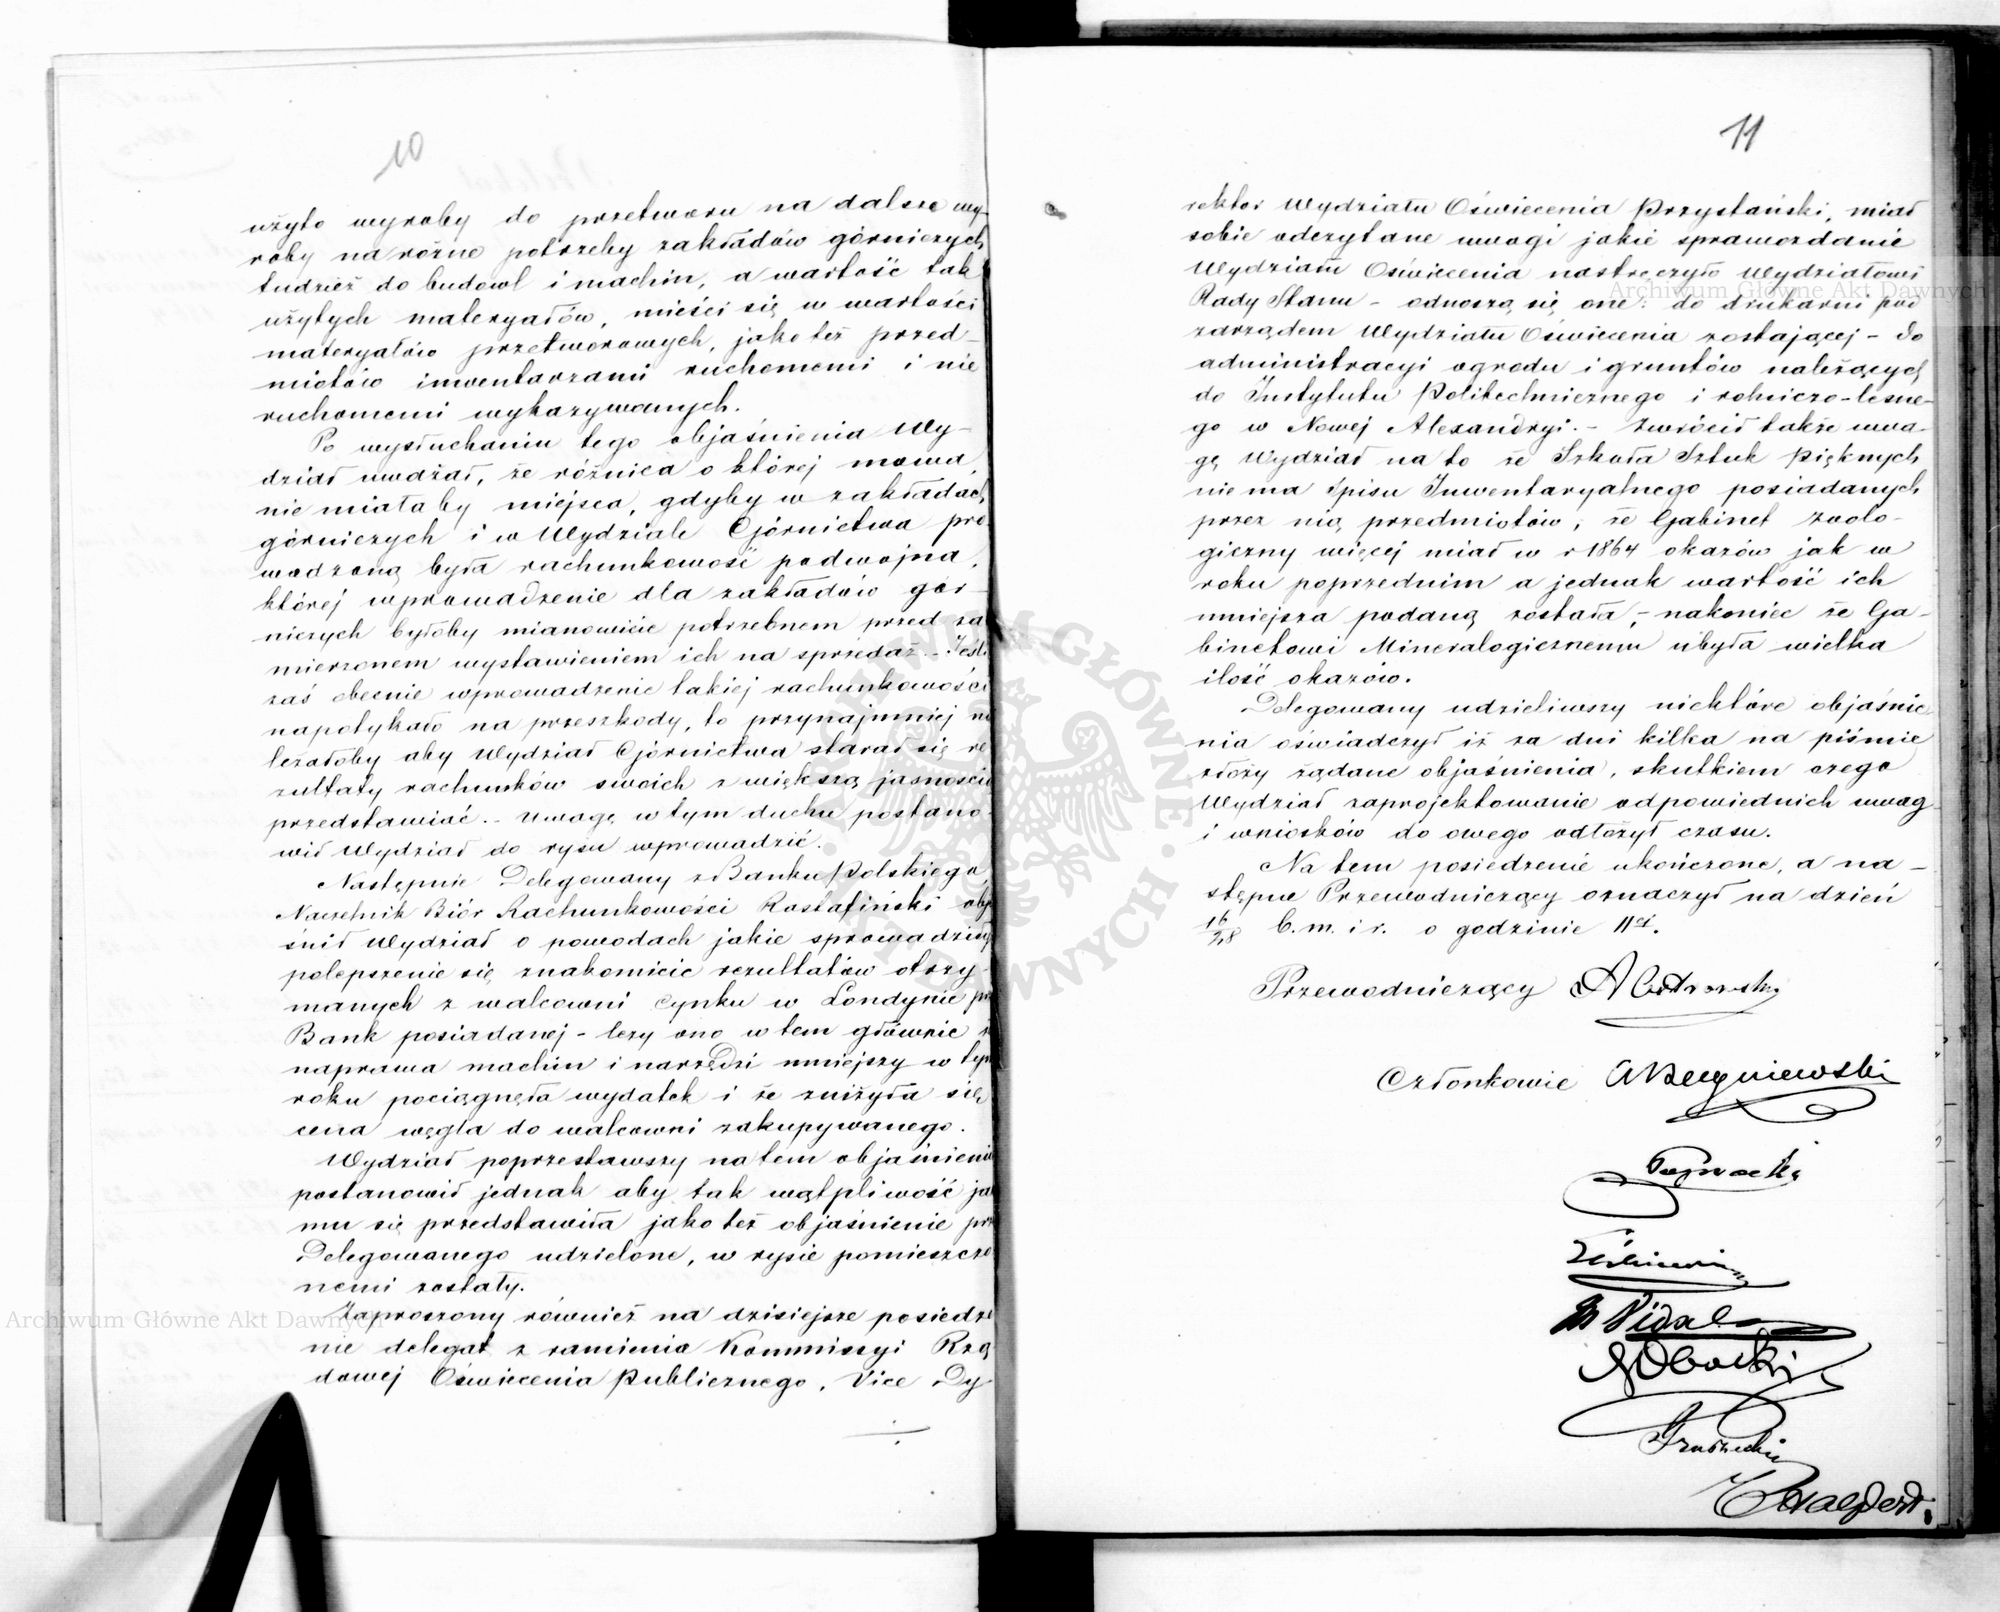 10
użyto wyroby do przetworu na dalsze wy-
roby na różne potrzeby zakładów górniczych
tudzież do budowl i machin, a wartość tak
użytych materyałów, mieści się w wartości
materyałów przetworowych, jako też przed-
miotów inwentarzami ruchomemi i nie
ruchomemi wykazywanych.
Po wysłuchaniu tego objaśnienia Wy-
dział uważał, że różnica o której mowa,
nie miałaby miejsca, gdyby w zakładach
górniczych i w Wydziale Górnictwa pro-
wadzoną była rachunkowość podwójna,
której wprowadzenie dla zakładów gór-
niczych byłoby mianowicie potrzebnem przed za
mierzonem wystawieniem ich na sprzedaż. - Jeśli
zaś obecnie wprowadzenie takiej rachunkowości
napotykało na przeszkody, to przynajmniej na
leżałoby aby Wydział Górnictwa starał się re
zultaty rachunków swoich z większą jasnością
przedstawiać. - Uwagę w tym duchu postano-
wił Wydział do rysu wprowadzić.
Następnie Delegowany z Banku Polskiego,
Naczelnik Biór Rachunkowości Rostafiński obja
śnił Wydział o powodach jakie sprowadziły
polepszenie się znakomicie rezultatów otrzy-
manych z walcowni cynku w Londynie prz
Bank posiadanej - leży ono w tem głównie ż
naprawa machin i narzędzi mniejszy w tym
roku pociągnęła wydatek i że zniżyła się
cena węgla do walcowni zakupywanego.
Wydział poprzestawszy na tem objaśnieniu
postanowił jednak aby tak wątpliwość ja
mu się przedstawiła jako też objaśnienie prz
Delegowanego udzielone, w rysie pomieszczo
nemi zostały.
Zaproszony również na dzisiejsze posiedze
nie delegat z ramienia Kommissyi Rzą
dowej Oświecenia Publicznego, Vice Dy-
11
rektor Wydziału Oświecenia Przystański, miał
sobie odczytane uwagi jakie sprawozdanie
Wydziału Oświecenia nastręczyło Wydziałowi
Rady Stanu - odnoszą się one: do drukarni pod
zarządem Wydziału Oświecenia zostającej - do
administracyi ogrodu i gruntów należących
do Instytutu Politechnicznego i rolniczo-leśne-
go w Nowej Alexandryi. - Zwrócił także uwa-
gę Wydział na to że Szkoła Sztuk Pięknych
nie ma Spisu Inwentaryalnego posiadanych
przez nią przedmiotów, że Gabinet Zoolo-
giczny więcej miał w r 1864 okazów jak w
roku poprzednim a jednak wartość ich
mniejsza podaną została, - nakoniec że Ga-
binetowi Mineralogicznemu ubyła wielka
ilość okazów.
Delegowany udzieliwszy niektóre objaśnie
nia oświadczył iż za dni kilka na piśmie
złoży żądane objaśnienia, skutkiem czego
Wydział zaprojektowanie odpowiednich uwag
i wniosków do owego odłożył czasu.
Na tem posiedzenie ukończone, a na-
stępne Przewodniczący oznaczył na dzień
16/28 b. m. i r. o godzinie 11ej.
Przewodniczący
Członkowie
M Vidal
Halpert.
Archiwum Główne Akt Dawnych
Archiwum Główne Akt Dawnych
ARCHIWUM GŁÓWNE · AKT DAWNYCH ·